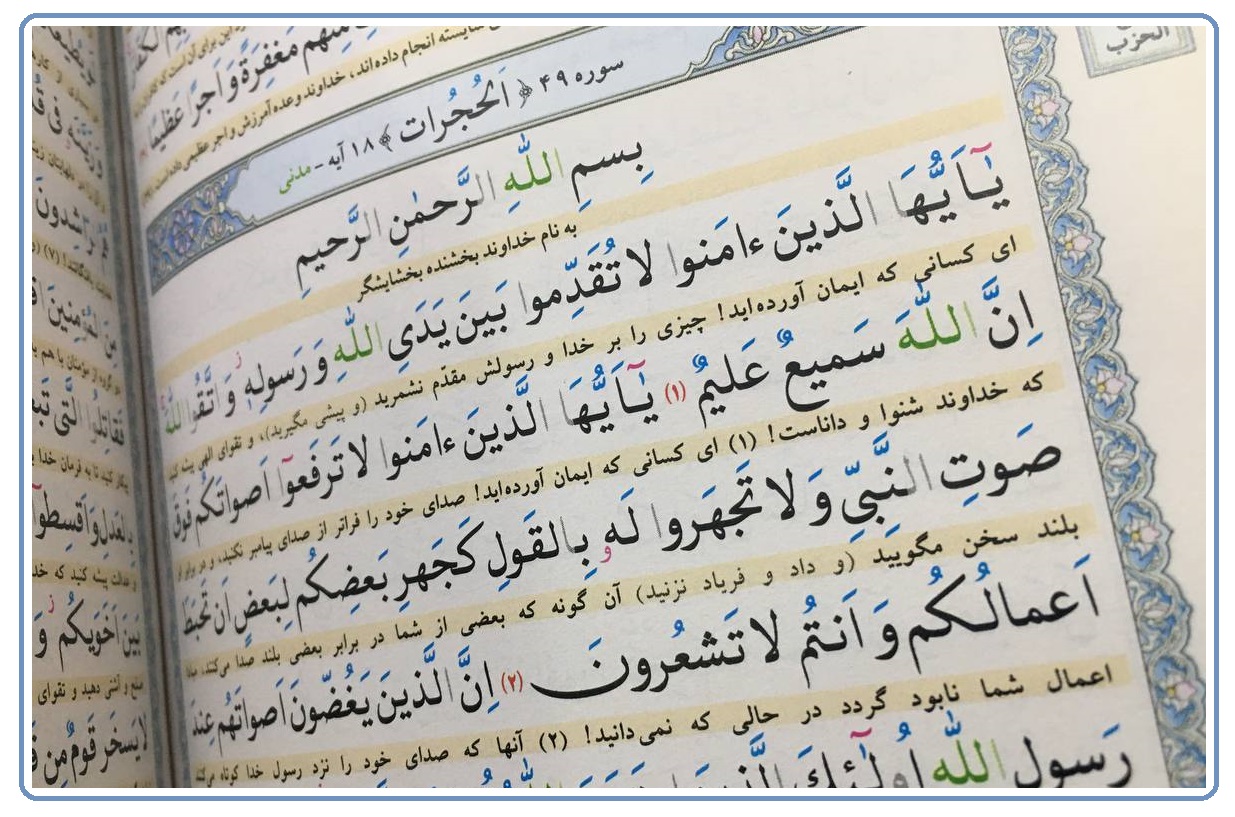 الحزب
مِنهُم مَغفِرَةً وَ اَجرًا عَظیمًا
شایسته انجام داده‌اند، خداوند وعده آمرزش و اجر عظیمی داده است.
سوره ۴۹ ﴿ اَلحُجُرات ﴾ ۱۸ آیه - مدنی
بِسمِ اللّٰهِ الرَّحمٰنِ الرَّحیمِ
به نام خداوند بخشنده بخشایشگر
یٰۤاَیُّهَا الَّذینَ ءامَنوا لا تُقَدِّموا بَینَ یَدَیِ اللّٰهِ وَ رَسولِهٖ وَ اتَّقُوا اللّٰهَ
ای کسانی که ایمان آورده‌اید! چیزی را بر خدا و رسولش مقدّم نشمرید (و پیشی مگیرید)، و تقوای الهی پیشه کنید
اِنَّ اللّٰهَ سَمیعٌ عَلیمٌ (۱) یٰۤاَیُّهَا الَّذینَ ءامَنوا لا تَرفَعوۤا اَصواتَکُم فَوقَ
که خداوند شنوا و داناست! (۱) ای کسانی که ایمان آورده‌اید! صدای خود را فراتر از صدای پیامبر نکنید، و در برابر او
صَوتِ النَّبِیِّ وَ لا تَجهَروا لَهٗ بِالقَولِ کَجَهرِ بَعضِکُم لِبَعضٍ اَن تَحبَطَ
بلند سخن مگویید (و داد و فریاد نزنید) آن گونه که بعضی از شما در برابر بعضی بلند صدا می‌کنند، مبادا
اَعمالُکُم وَ اَنتُم لا تَشعُرونَ (۲) اِنَّ الَّذینَ یَغُضّونَ اَصواتَهُم عِندَ
اعمال شما نابود گردد در حالی که نمی‌دانید! (۲) آنها که صدای خود را نزد رسول خدا کوتاه می‌کنند
رَسولِ اللّٰهِ اُولٰۤئِکَ الَّذینَ
فی قُ
الرّٰشِدونَ
مِنَ المُؤمِنینَ
فَقاتِلُوا الَّتی تَبغ
بِالعَدلِ وَ اَقسِطوۤا
بَینَ اَخَوَیکُم وَ
صلح و آشتی دهید و تقوای
لا یَسخَر قَومٌ مِن قَ